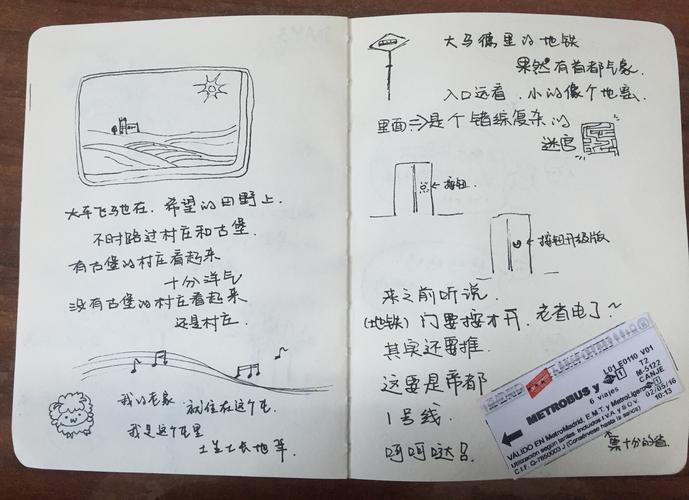 大车飞驰在.希望的田野上.
不时路过村庄和古堡.
有古堡的村庄看起来
十分洋气
没有古堡的村庄看起来
还是村庄.
我的老家 就住在这个屯
我是这个屯里
土生土长地羊
大马德里的地铁
果然有首都气象.
入口远看.小的像个地窖.
里面⇒是个错综复杂的
迷宫
←按钮.
←按钮升级版
来之前听说.
(地铁)门要按才开.老省电了~
其实还要推
这要是帝都
1号线.
呵呵哒!
L01 E0110 V01
T2
M-5122
CANJE
METROBUS y
6 viajes
02/05/16
10:13
VÁLIDO EN MetroMadrid, E.M.T. y MetroLigero
Utilización según tarifas. Incluidos I.V.A. y S.O.V.
C.I.F. Q-7850003 J (Consérvese hasta la salida)
票十分的